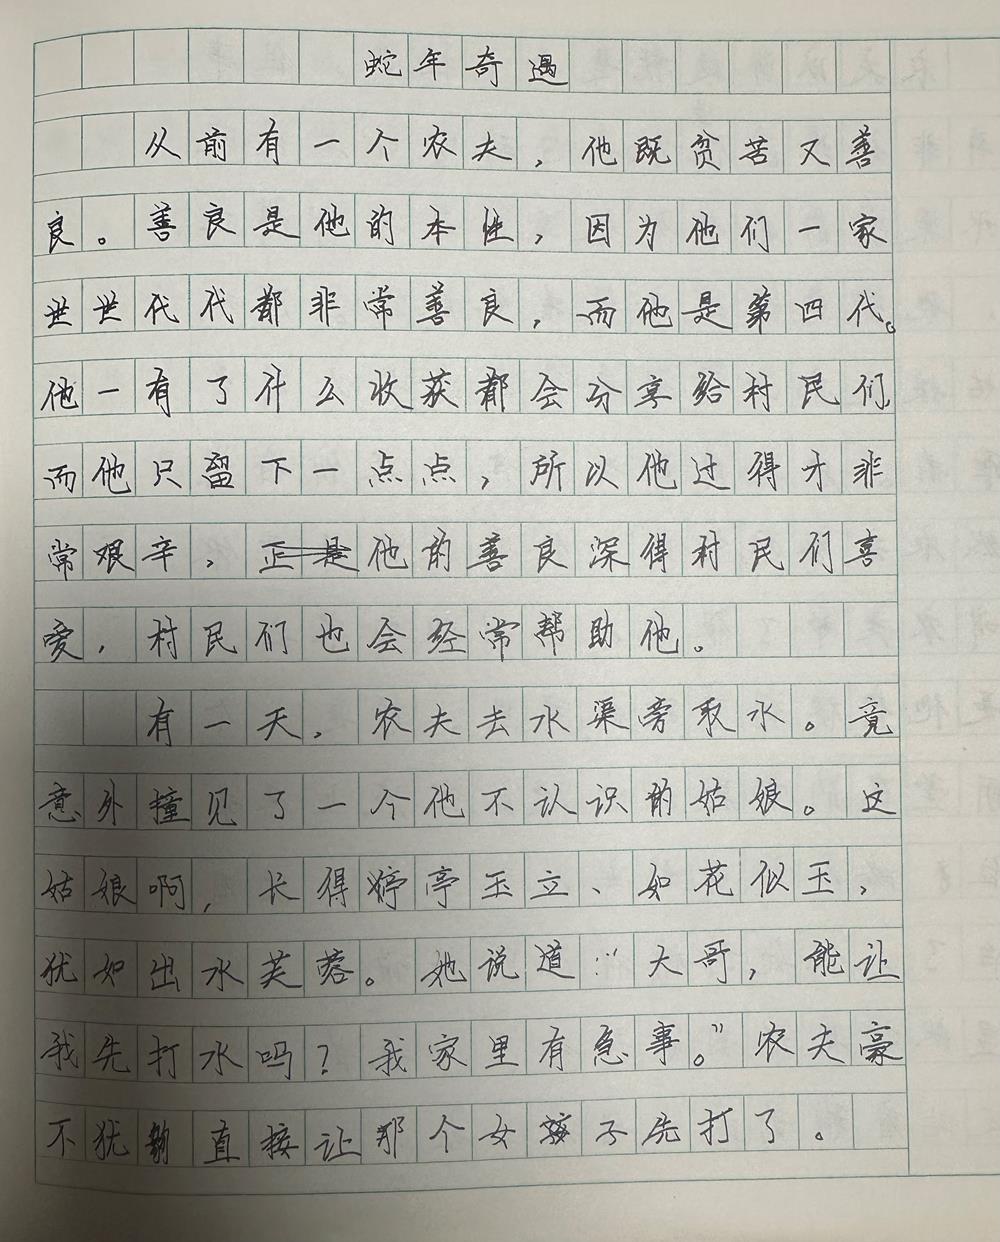 蛇年奇遇
从前有一个农夫，他既贫苦又善
良。善良是他的本性，因为他们一家
世世代代都非常善良，而他是第四代。
他一有了什么收获都会分享给村民们
而他只留下一点点，所以他过得才非
常艰辛，正是他的善良深得村民们喜
爱，村民们也会经常帮助他。
有一天，农夫去水渠旁取水。竟
意外撞见了一个他不认识的姑娘。这
姑娘啊，长得婷亭玉立、如花似玉，
犹如出水芙蓉。她说道：“大哥，能让
我先打水吗？我家里有急事。”农夫豪
不犹豫直接让那个女孩子先打了。